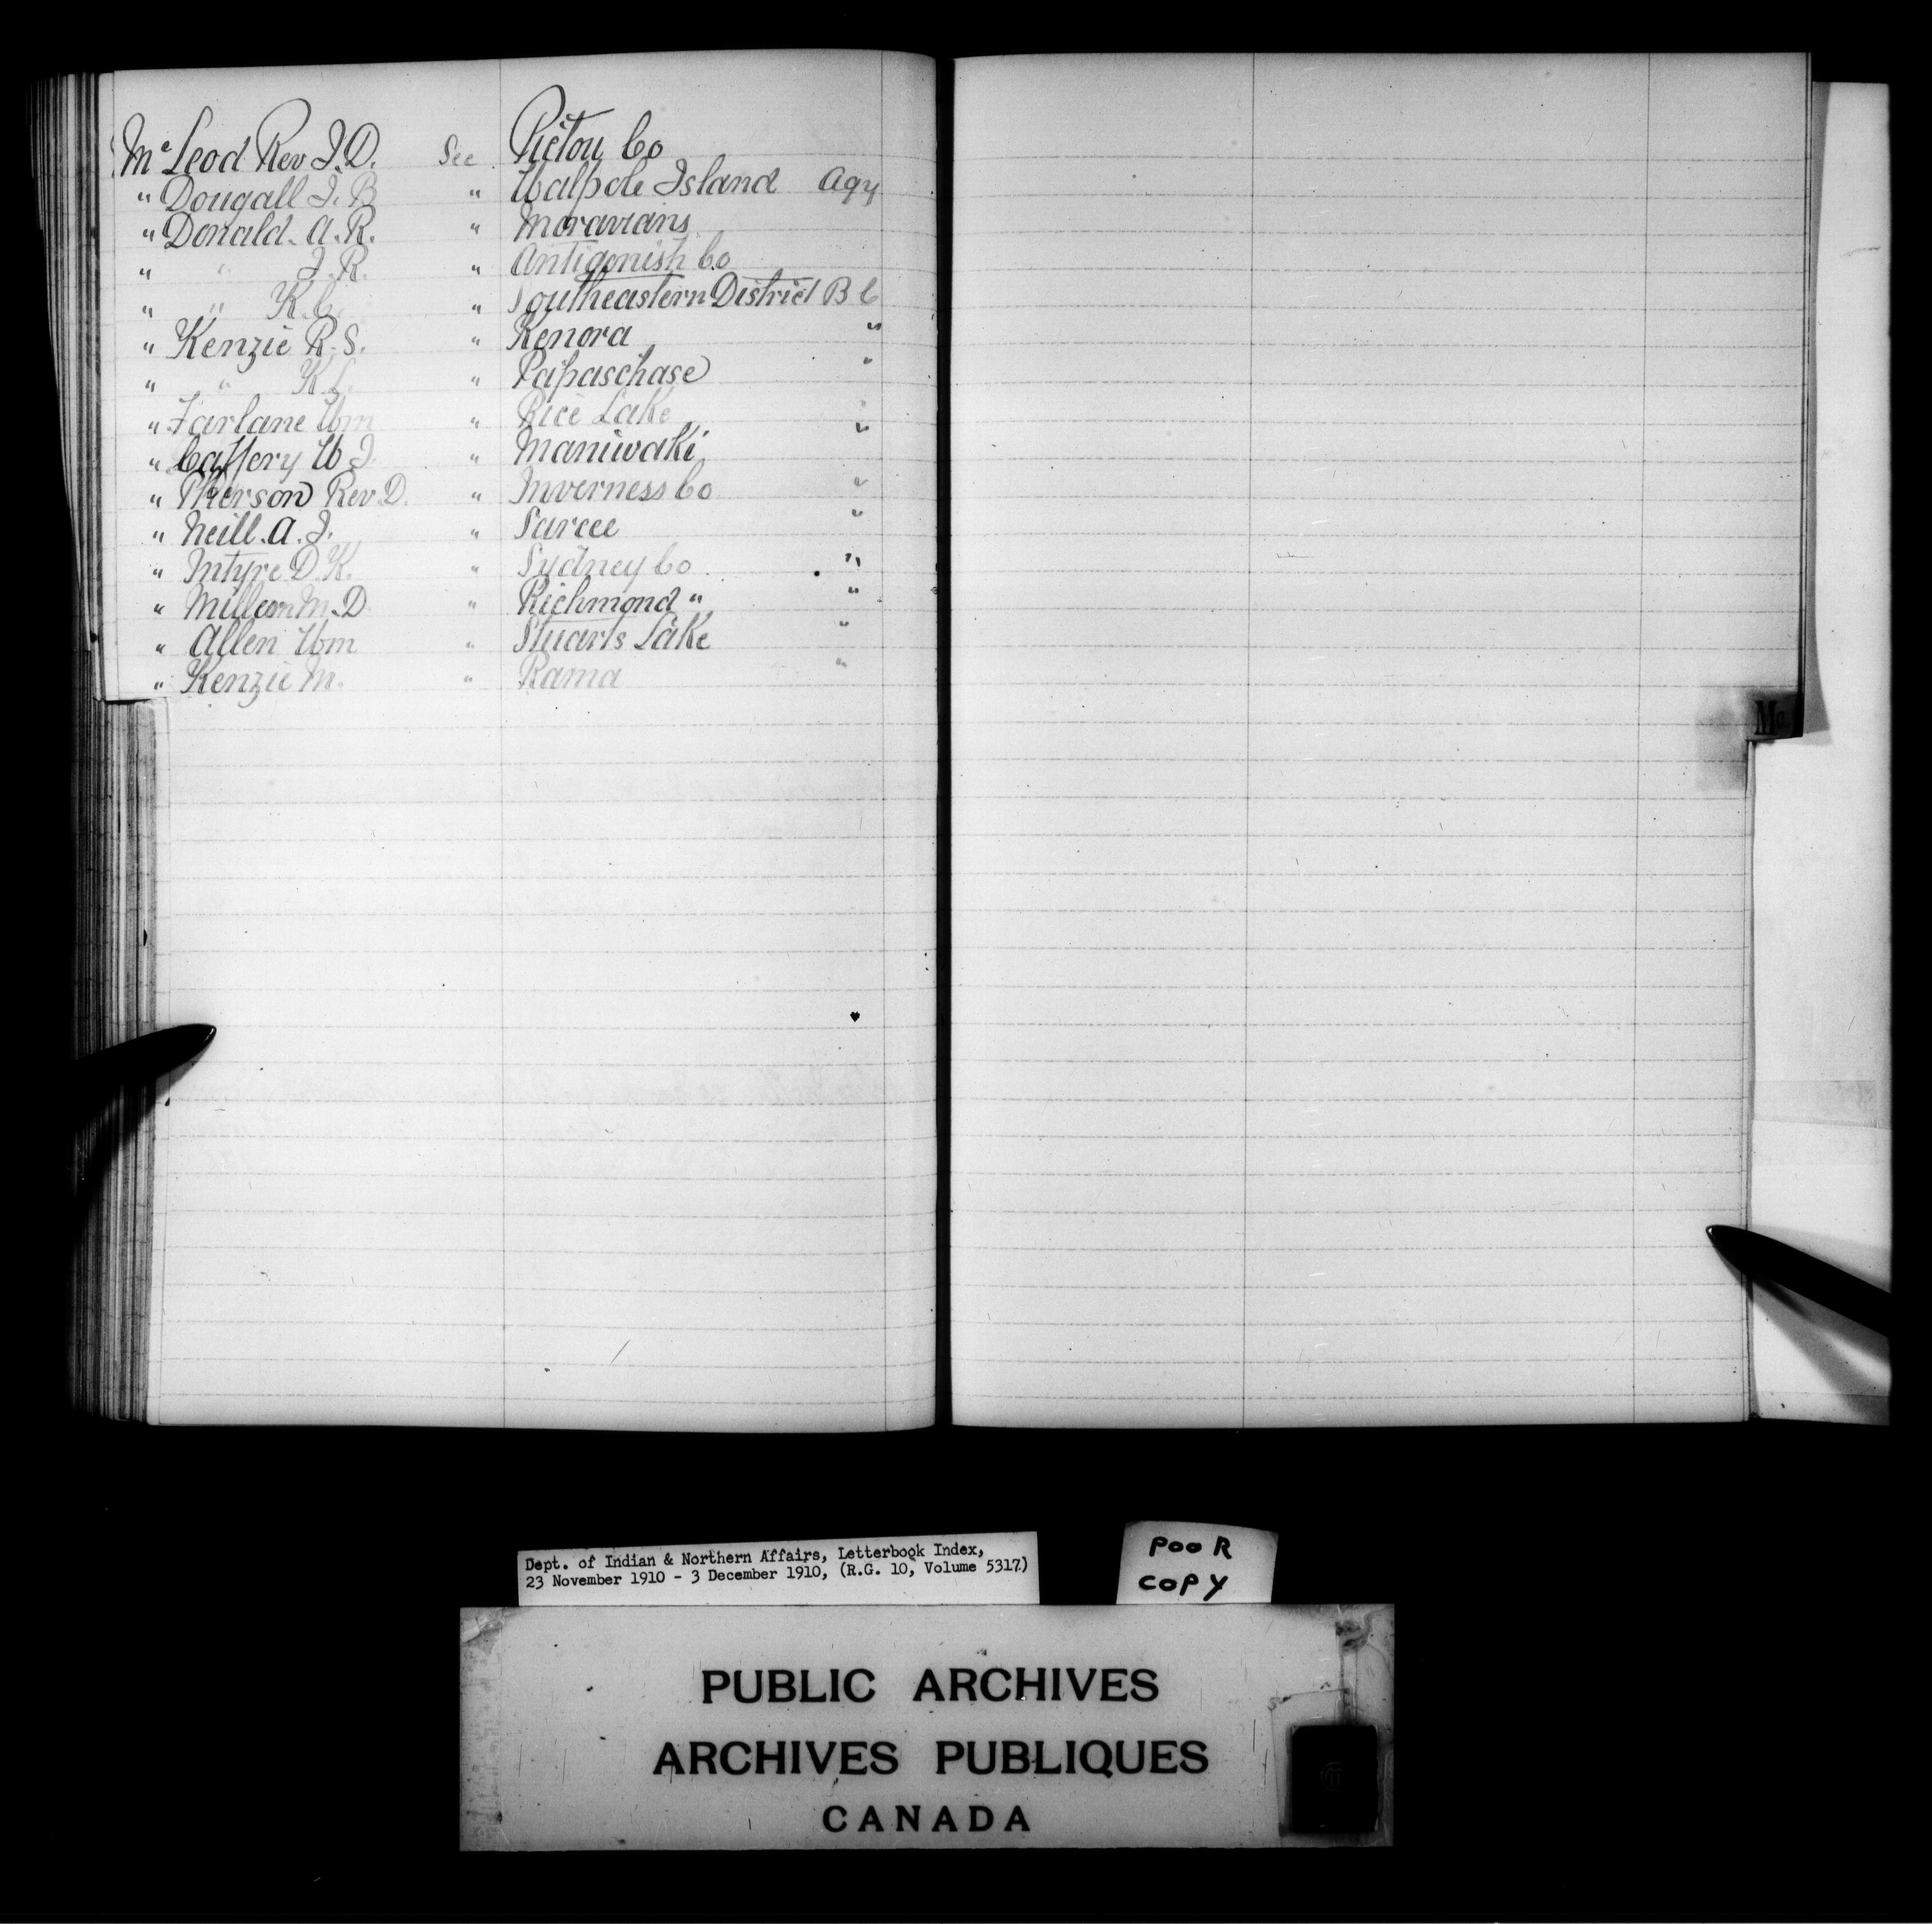 Mc Leod Rev J. D. See Pictou Co
" Dougall J. B " Walpole Island Agy
" Donald. A. R. " Moravians
" " J. R. " Antigonish Co
" " K. C. " Southeastern District B C
" Kenzie R. S. " Kenora "
" " K. L. " Papaschase "
" Farlane Wm " Rice Lake "
" Caffery W J. " Maniwaki "
" Pherson Rev D. " Inverness Co "
" Neill. A. J. " Sarcee "
" Intyre D. K. " Sydney Co "
" Millan M. D. " Richmond " "
" Allen Wm " Stuarts Lake "
" Kenzie M. " Rama "
Mc
Dept. of Indian & Northern Affairs, Letterbook Index,
23 November 1910 - 3 December 1910, (R.G. 10, Volume 5317)
POOR
COPY
PUBLIC ARCHIVES
ARCHIVES PUBLIQUES
CANADA